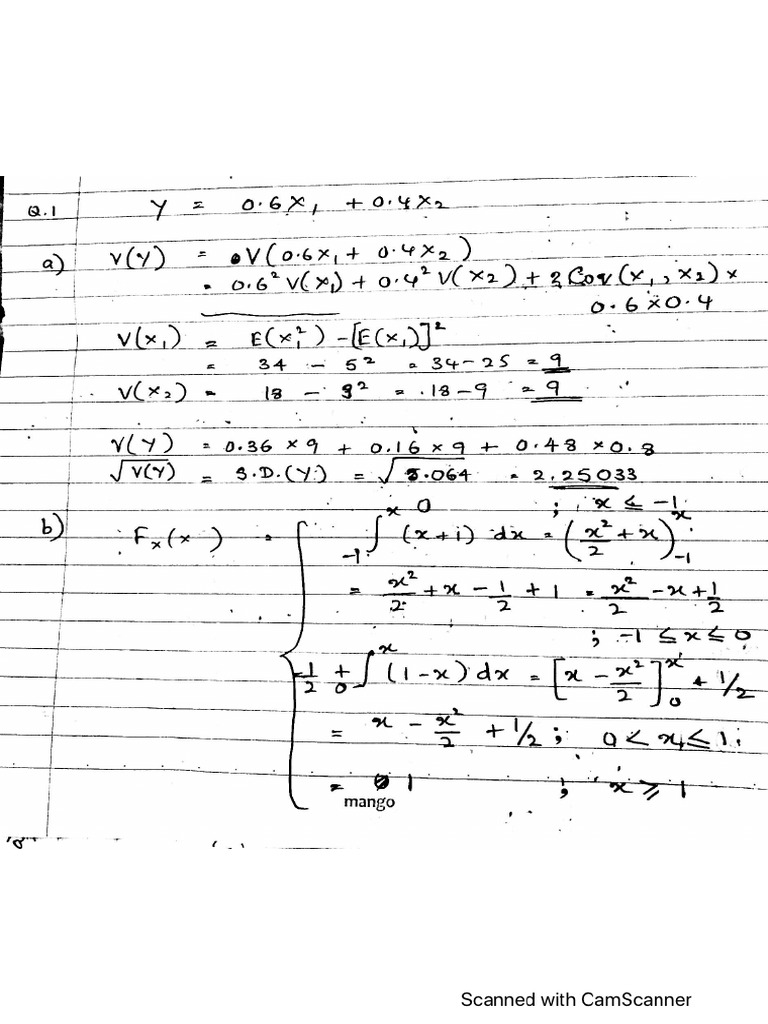 Q.1 Y = 0.6X₁ + 0.4X₂
a) V(Y) = V(0.6X₁ + 0.4X₂)
= 0.6² V(X₁) + 0.4² V(X₂) + 2 Cov(X₁, X₂) ×
0.6 × 0.4
V(X₁) = E(X₁²) - [E(X₁)]²
= 34 - 5² = 34 - 25 = 9
V(X₂) = 18 - 3² = 18 - 9 = 9
V(Y) = 0.36 × 9 + 0.16 × 9 + 0.48 × 0.8
√V(Y) = S.D.(Y) = √5.064 = 2.25033
b) Fₓ(x) = { 0 ; x ≤ -1
∫₋₁ˣ (x+1) dx = (x²/2 + x)₋₁ˣ
= x²/2 + x - 1/2 + 1 = x²/2 - x + 1/2
; -1 ≤ x ≤ 0
1/2 + ∫₀ˣ (1-x) dx = [x - x²/2]₀ˣ + 1/2
= x - x²/2 + 1/2 ; 0 < x ≤ 1
= 1 ; x ≥ 1
mango
Scanned with CamScanner